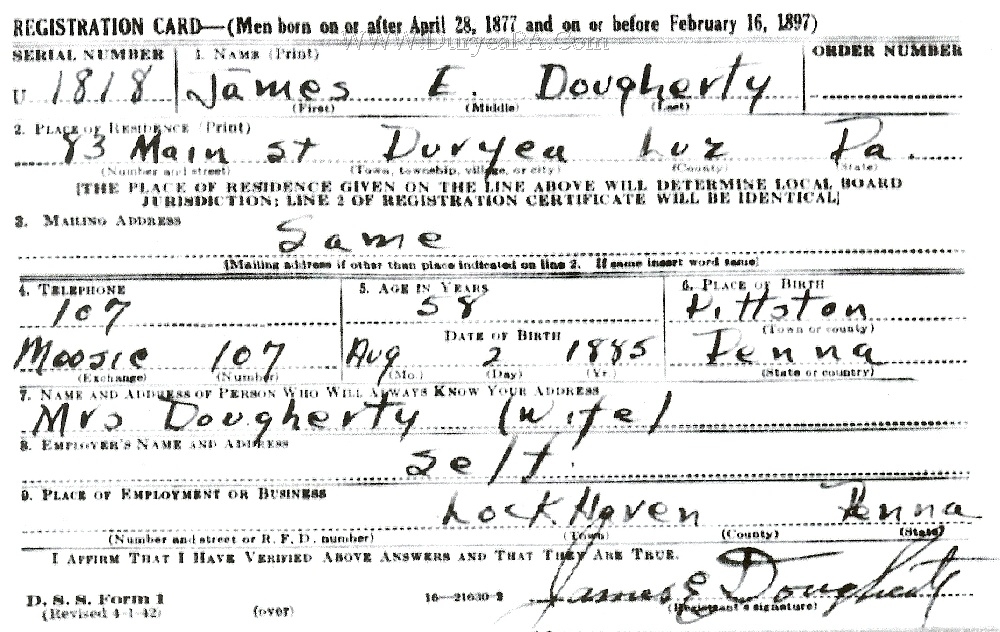 REGISTRATION CARD—(Men born on or after April 28, 1877 and on or before February 16, 1897)
WWW.DuryeaPA.Com
SERIAL NUMBER 1. NAME (Print) ORDER NUMBER
U 1818 James E. Dougherty
(First) (Middle) (Last)
2. PLACE OF RESIDENCE (Print)
83 Main st Duryea Luz Pa.
(Number and street) (Town, township, village, or city) (County) (State)
[THE PLACE OF RESIDENCE GIVEN ON THE LINE ABOVE WILL DETERMINE LOCAL BOARD
JURISDICTION; LINE 2 OF REGISTRATION CERTIFICATE WILL BE IDENTICAL]
3. MAILING ADDRESS
Same
[Mailing address if other than place indicated on line 2. If same insert word same]
4. TELEPHONE 5. AGE IN YEARS 6. PLACE OF BIRTH
107 58 Pittston
DATE OF BIRTH (Town or county)
Moosic 107 Aug 2 1885 Penna
(Exchange) (Number) (Mo.) (Day) (Yr.) (State or country)
7. NAME AND ADDRESS OF PERSON WHO WILL ALWAYS KNOW YOUR ADDRESS
Mrs Dougherty (wife)
8. EMPLOYER'S NAME AND ADDRESS
Self
9. PLACE OF EMPLOYMENT OR BUSINESS
Lock Haven Penna
(Number and street or R. F. D. number) (Town) (County) (State)
I AFFIRM THAT I HAVE VERIFIED ABOVE ANSWERS AND THAT THEY ARE TRUE.
James E Dougherty
D. S. S. Form 1 16—21630-2
(Revised 4-1-42) (over) (Registrant's signature)